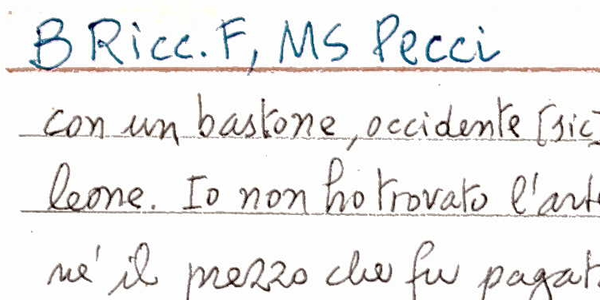 B Ricc. F, MS Pecci
con un bastone, occidente [sic]
leone. Io non ho trovato l'art
né il prezzo che fu pagat